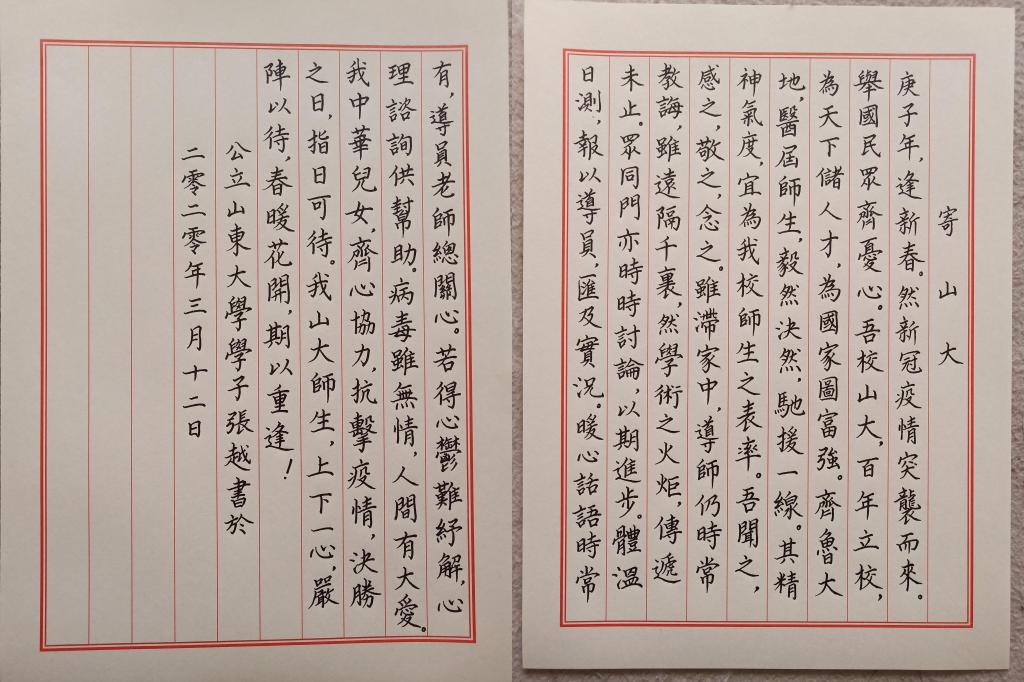 寄山大
庚子年，逢新春。然新冠疫情突襲而來。
舉國民眾齊憂心。吾校山大，百年立校，
為天下儲人才，為國家圖富強。齊魯大
地，醫屆師生，毅然決然，馳援一線。其精
神氣度，宜為我校師生之表率。吾聞之，
感之，敬之，念之。雖滯家中，導師仍時常
教誨，雖遠隔千裏，然學術之火炬，傳遞
未止。眾同門亦時時討論，以期進步。體溫
日測，報以導員，匯及實況。暖心話語時常
有，導員老師總關心。若得心鬱難紓解，心
理諮詢供幫助。病毒雖無情，人間有大愛。
我中華兒女，齊心協力，抗擊疫情，決勝
之日，指日可待。我山大師生，上下一心，嚴
陣以待，春暖花開，期以重逢！
公立山東大學學子張越書於
二零二零年三月十二日